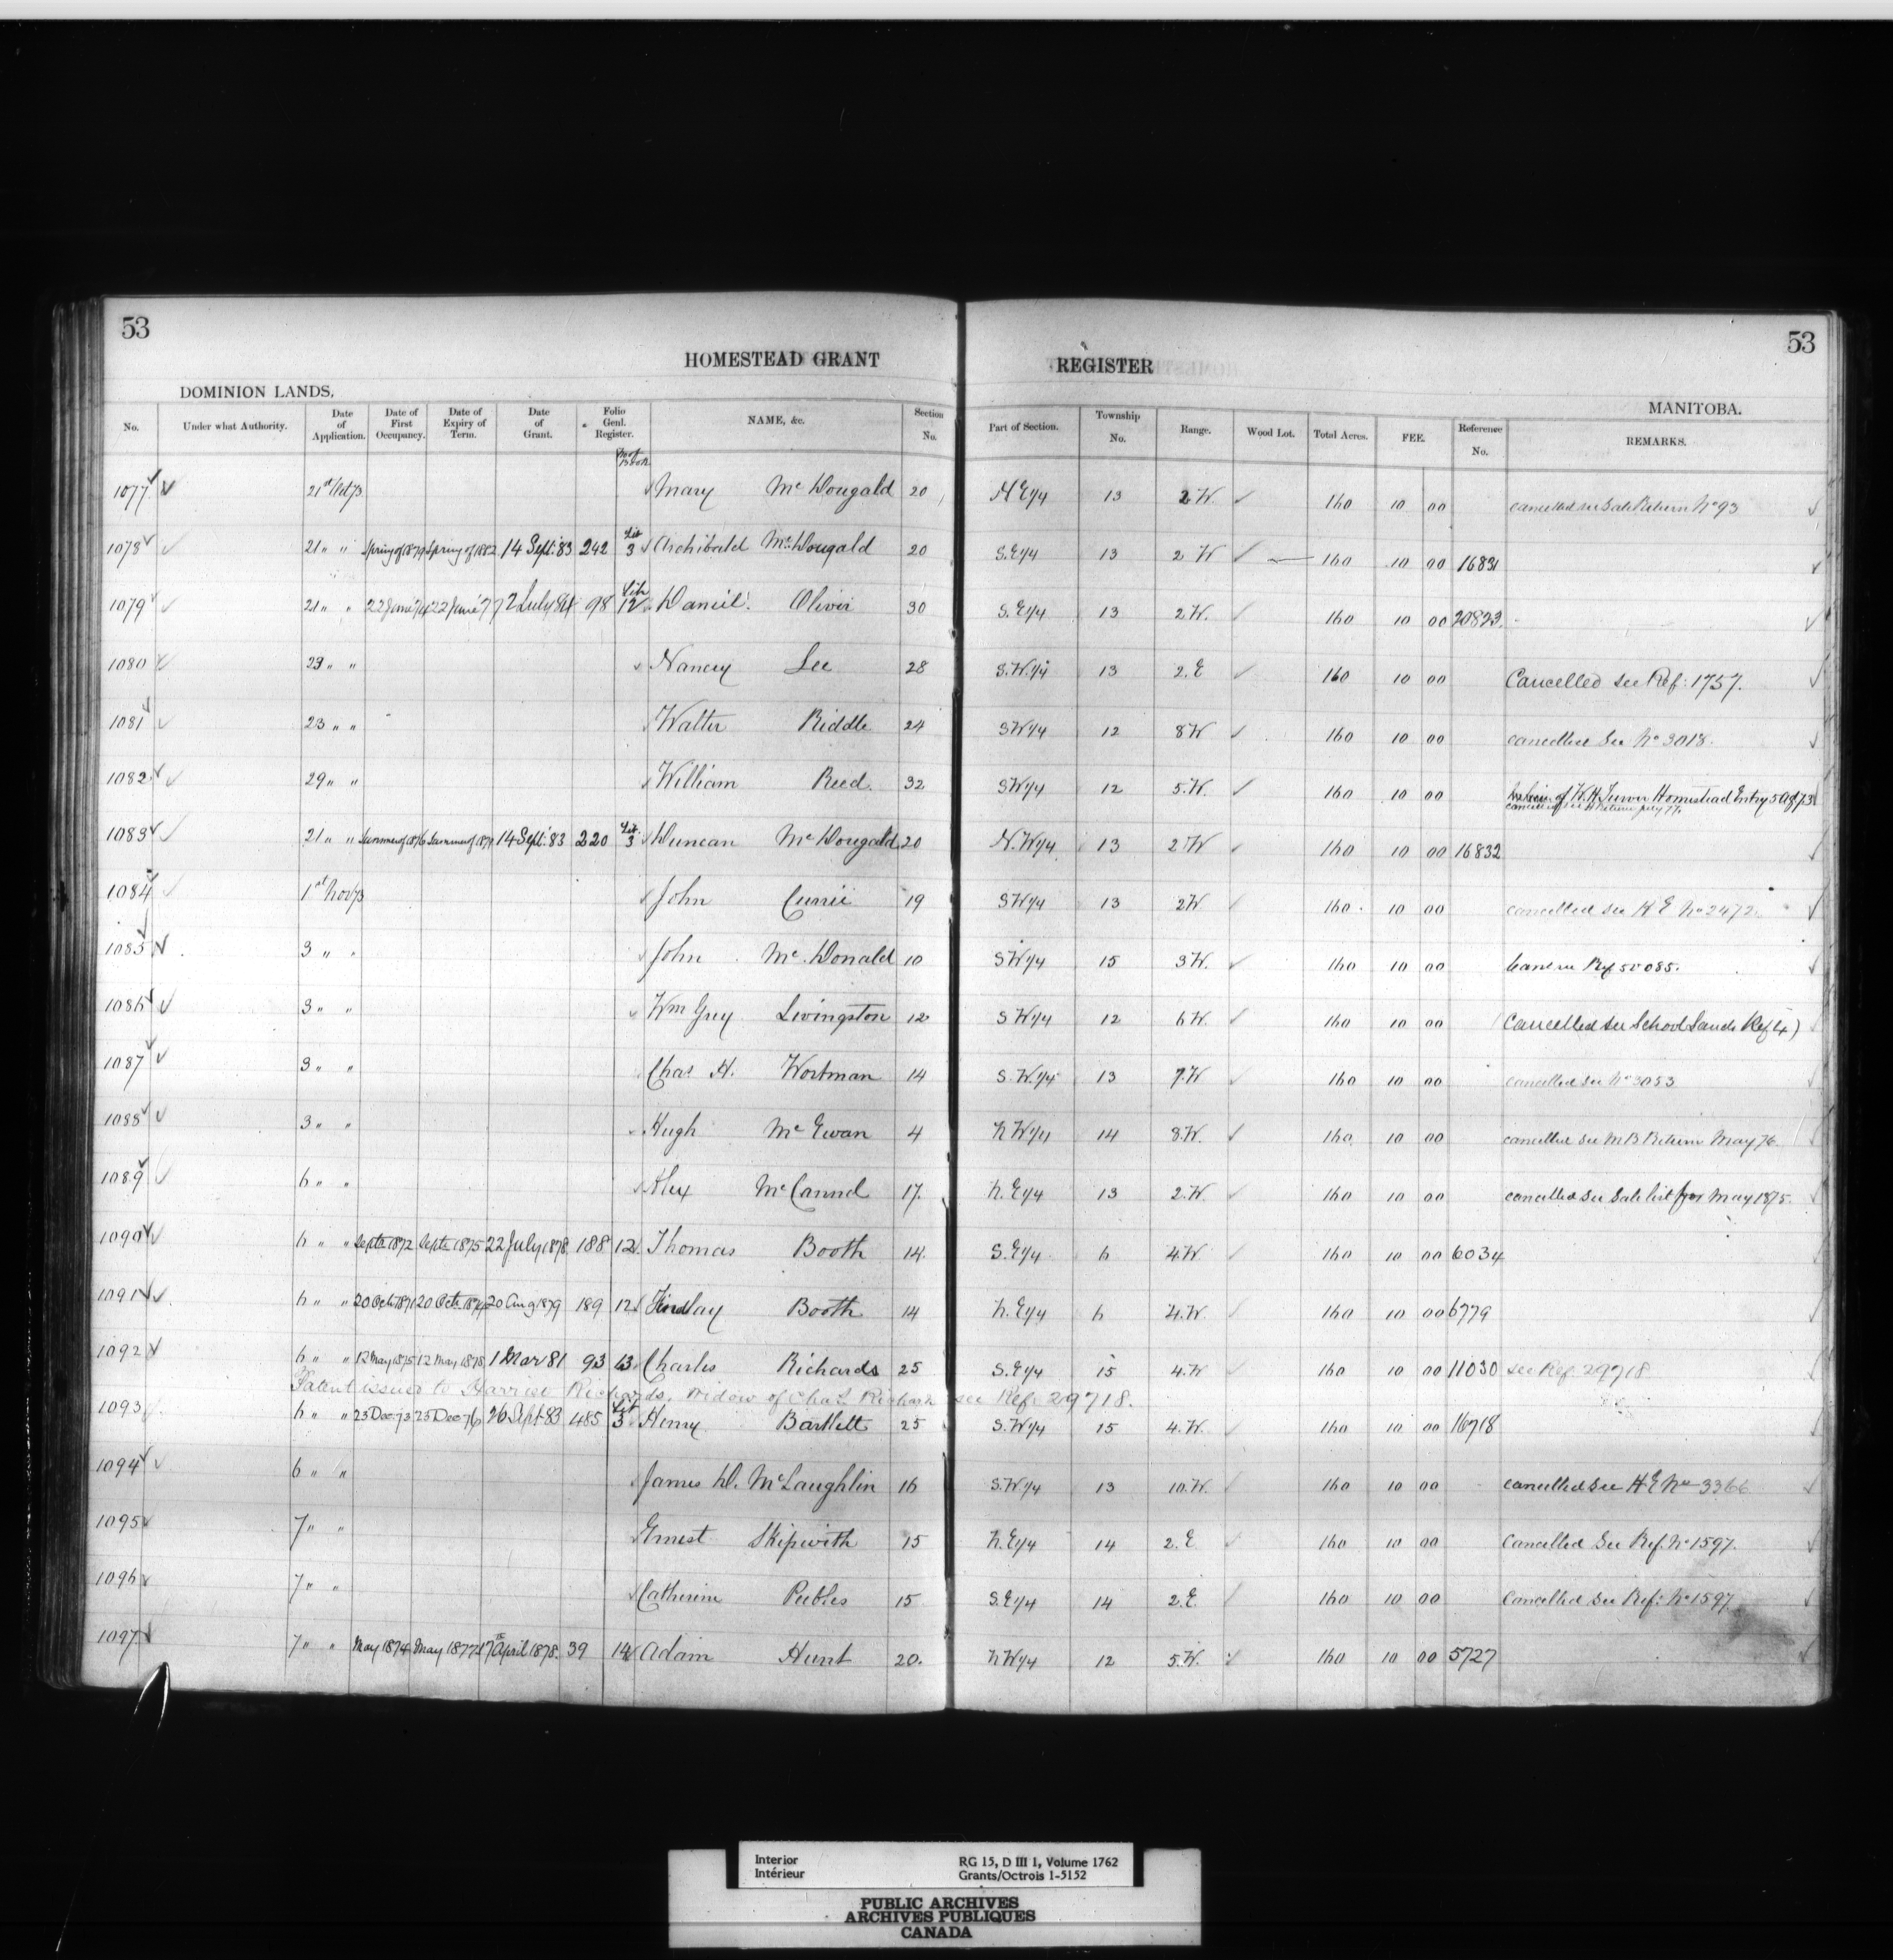 53 53
HOMESTEAD GRANT REGISTER
DOMINION LANDS. MANITOBA.
No. Under what Authority. Date of Application. Date of First Occupancy. Date of Expiry of Term. Date of Grant. Folio Genl. Register. NAME, &c. Section No. Part of Section. Township No. Range. Wood Lot. Total Acres. FEE. Reference No. REMARKS.
1077 21st Oct 73 Mary McDougald 20 N E 1/4 13 2 W. 160 10 00 cancelled see Sale Return No 93
1078 21 " " Spring of 1879 Spring of 1882 14 Sept. 83 242 Lib 3 Archibald McDougald 20 S.E 1/4 13 2 W 160 10 00 16831
1079 21 " " 22 June 74 22 June 77 2 July 84 98 Lib 12 Daniel Oliver 30 S.E 1/4 13 2 W. 160 10 00 20823
1080 23 " " Nancy Lee 28 S.W. 1/4 13 2.E 160 10 00 Cancelled see Ref: 1757.
1081 23 " " Walter Riddle 24 SW 1/4 12 8 W 160 10 00 cancelled See No 3018.
1082 29 " " William Reed. 32 SW 1/4 12 5.W. 160 10 00 of W.H. Homestead Entry
1083 21 " " Summer of 1876 Summer of 1879 14 Sept. 83 220 Lib. 3 Duncan McDougald 20 N.W 1/4 13 2 W 160 10 00 16832
1084 1st Nov 73 John Currie 19 SW 1/4 13 2W 160 10 00 cancelled see H E No 2472
1085 3 " " John McDonald 10 SW 1/4 15 3 W. 160 10 00 Ref 50085.
1086 3 " " Wm Grey Livingston 12 S W 1/4 12 6 W. 160 10 00 Cancelled see School Lands Ref 4)
1087 3 " " Chas H. Wortman 14 S.W. 1/4 13 7.W 160 10 00 cancelled see No 3053
1088 3 " " Hugh McEwan 4 N W 1/4 14 8.W. 160 10 00 cancelled see M B Return May 76.
1089 6 " " Alex McCannel 17. N.E 1/4 13 2.W. 160 10 00 cancelled see Sale list for May 1875.
1090 6 " " Septr 1872 Septr 1875 22 July 1878 188 12 Thomas Booth 14. S.E 1/4 6 4.W. 160 10 00 6034
1091 6 " " 20 Oct 1871 20 Oct 1874 20 Aug 1879 189 12 Findlay Booth 14 N.E 1/4 6 4.W. 160 10 00 6779
1092 6 " " 12 May 1875 12 May 1878 1 Mar 81 93 13 Charles Richards 25 S.E 1/4 15 4.W 160 10 00 11030 see Ref. 29718
Patent issued to Harriet Richards, widow of Chas Richards see Ref. 29718.
1093 6 " " 23 Dec 73 23 Dec 76 26 Sept 83 485 Lib 3 Henry Bartlett 25 S.W 1/4 15 4.W. 160 10 00 16718
1094 6 " " James D. McLaughlin 16 S.W 1/4 13 10.W. 160 10 00 cancelled see H E No 3366
1095 7 " " Ernest Skipwith 15 N.E 1/4 14 2.E 160 10 00 Cancelled See Ref. No 1597.
1096 7 " " Catherine Peebles 15 S.E 1/4 14 2.E. 160 10 00 Cancelled See Ref: No 1597
1097 7 " " May 1874 May 1877 17th April 1878. 39 14 Adam Hunt 20. N W 1/4 12 5.W. 160 10 00 5727
Interior RG 15, D III 1, Volume 1762
Intérieur Grants/Octrois 1-5152
PUBLIC ARCHIVES
ARCHIVES PUBLIQUES
CANADA